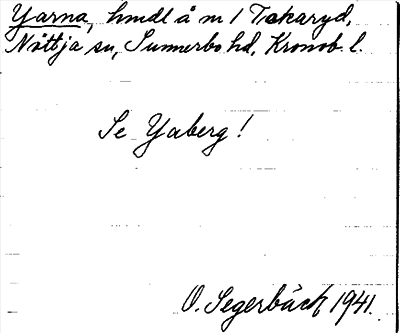 Yarna, hmdl å m 1 Tskaryd,
Nöttja sn, Sunnerbo hd, Kronob. l.
Se Yaberg!
O. Segerbäck 1941.